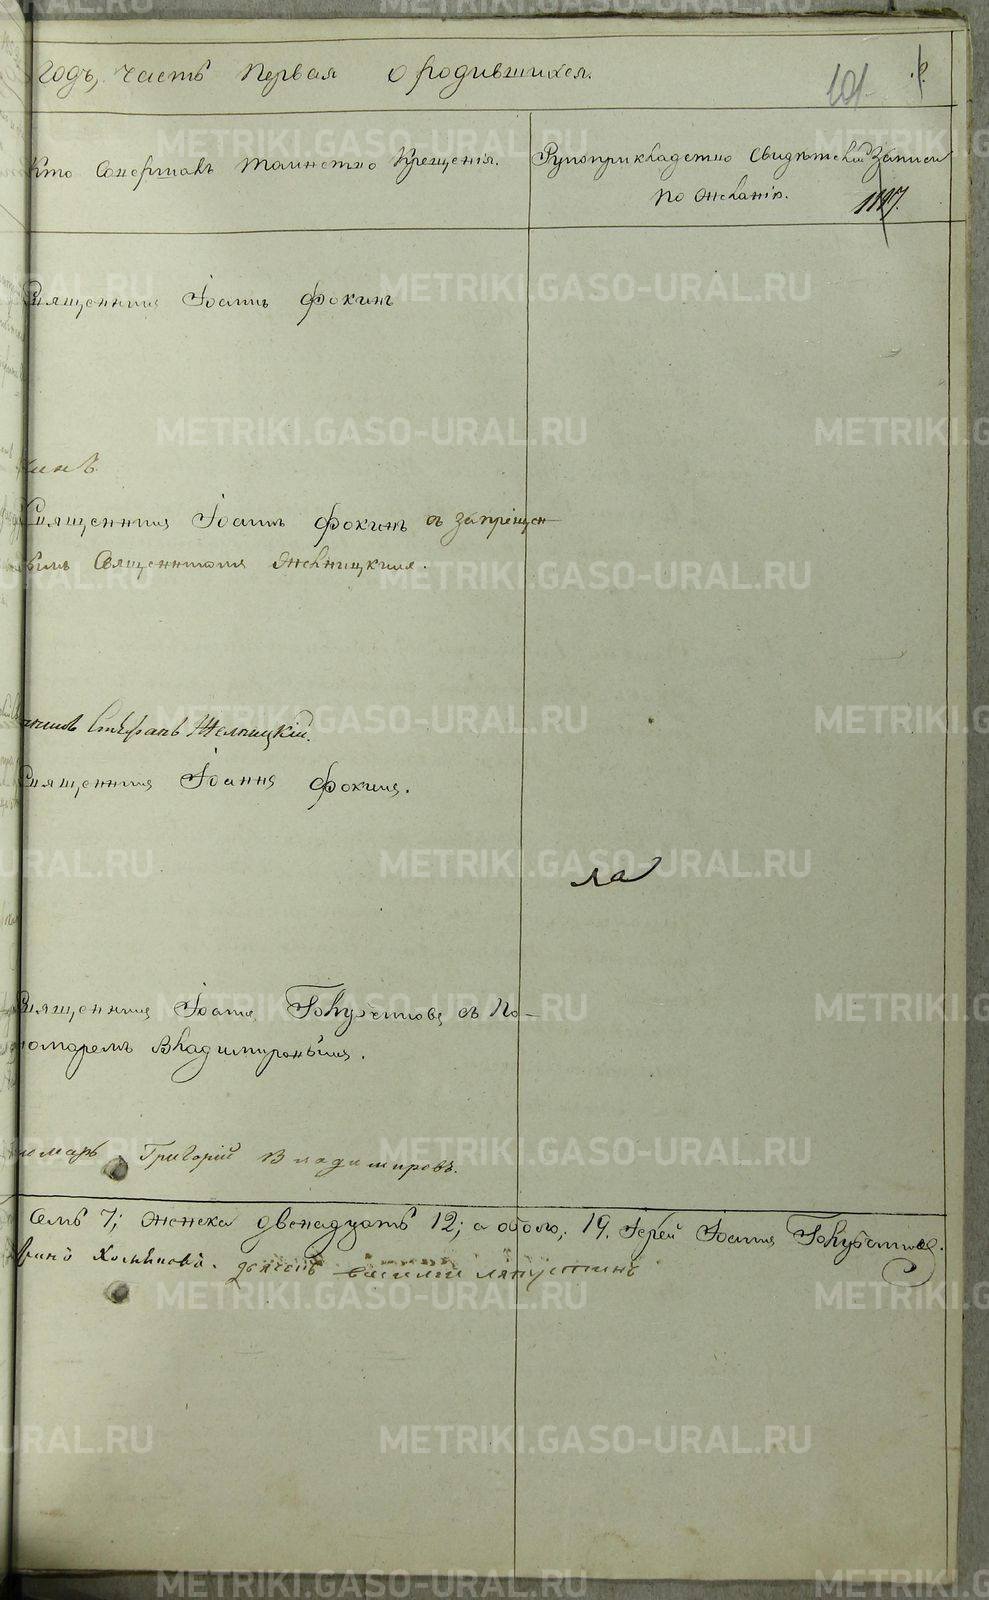 Годъ, часть первая о родившихся.
101
Кто совершалъ таинство крещенія.
Рукоприкладство свидѣтелей записи
по желанію.
Священникъ Іоаннъ Фокинъ
кинъ
Священникъ Іоаннъ Фокинъ съ запрещен-
нымъ Священникомъ Желницкимъ.
Стефанъ Желницкій.
Священникъ Іоаннъ Фокинъ.
ла
Священникъ Іоаннъ Голубчиковъ съ по-
номаремъ Владимировымъ.
номарь Григорій Владимировъ.
семь 7; женска двенадцать 12; а обоего, 19. Іерей Іоаннъ Голубчиковъ.
дьячекъ Василий
METRIKI.GASO-URAL.RU